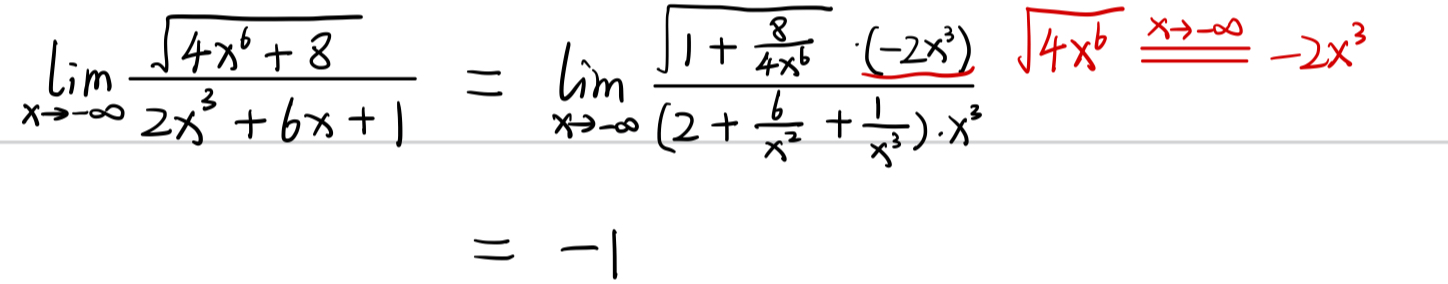 $\lim_{x \to -\infty} \frac{\sqrt{4x^6 + 8}}{2x^3 + 6x + 1} = \lim_{x \to -\infty} \frac{\sqrt{1 + \frac{8}{4x^6}} \cdot (-2x^3)}{(2 + \frac{6}{x^2} + \frac{1}{x^3}) \cdot x^3}$ $\sqrt{4x^6} \overset{x \to -\infty}{=\!=\!=} -2x^3$
$= -1$